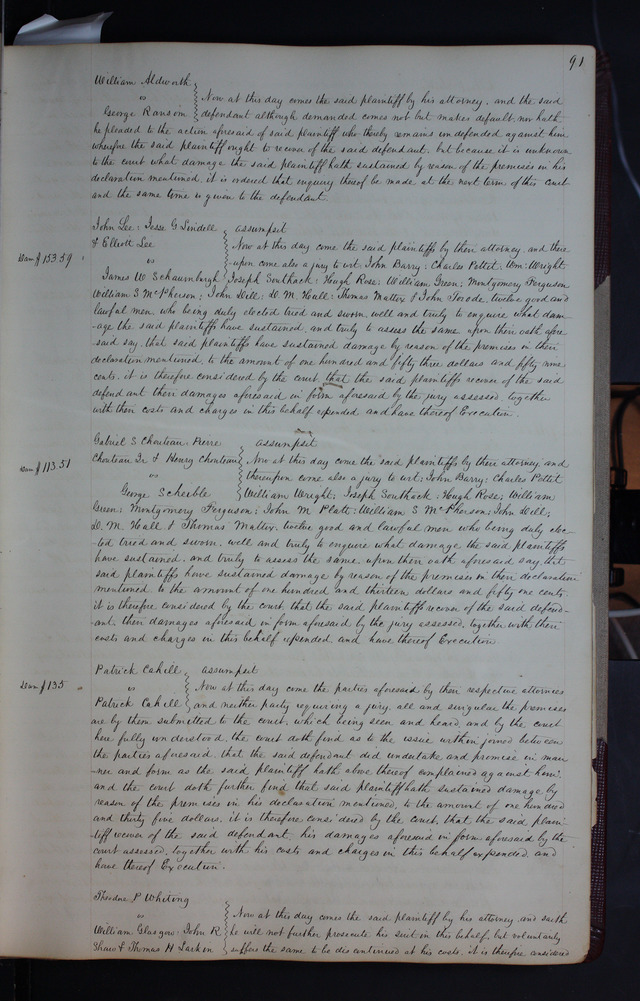 91
William Aldworth
vs Now at this day comes the said plaintiff by his attorney, and the said
George Ransom defendant although demanded comes not but makes default, nor hath
he pleaded to the action aforesaid of said plaintiff who thereby remains undefended against him
wherefore the said plaintiff ought to recover of the said defendant. but because it is unknown
to the court what damage the said plaintiff hath sustained by reason of the premises in his
declaration mentioned. it is ordered that enquiry thereof be made at the next term of this court
and the same time is given to the defendant.
John Lee; Jesse G Lindell assumpsit
& Elliott Lee Now at this day come the said plaintiffs by their attorney, and there
Dam $153.59
vs upon come also a jury to wit: John Barry; Charles Pottet; Wm: Wright
James W Schaumburgh Joseph Southack; Hough Rose; William Green; Montgomery Ferguson
William S McPherson; John Dile; D. M. Hall; Thomas Mattox & John Torode, twelve good and
lawful men who being duly elected tried and sworn, well and truly to enquire what dam-
-age the said plaintiffs have sustained, and truly to assess the same upon their oath afore
said say, that said plaintiffs have sustained damage by reason of the premises in their
declaration mentioned to the amount of one hundred and fifty three dollars and fifty nine
cents. it is therefore considered by the court that the said plaintiffs recover of the said
defendant their damages aforesaid in form aforesaid by the jury assessed, together
with their costs and charges in this behalf expended and have thereof Execution.
Gabriel S Chouteau, Pierre assumpsit
Chouteau Jr & Henry Chouteau Now at this day come the said plaintiffs by there attorney, and
Dam $113.51
vs thereupon come also a jury to wit; John Barry; Charles Pottet
George Scheible William Wright; Joseph Southack; Hough Rose; William
Green; Montgomery Ferguson; John M Platt; William S McPherson; John Dile;
D. M. Hall & Thomas Mattox, twelve good and lawful men who being duly elec-
-ted tried and sworn, well and truly to enquire what damage the said plaintiffs
have sustained, and truly to assess the same, upon their oath aforesaid say, that
said plaintiffs have sustained damage by reason of the premises in their declaration
mentioned to the amount of one hundred and thirteen dollars and fifty one cents.
it is therefore considered by the court that the said plaintiffs recover of the said defend-
-ant, their damages aforesaid in form aforesaid by the jury assessed, together with their
costs and charges in this behalf expended, and have thereof Execution.
Patrick Cahill assumpsit
Dam $135
vs Now at this day come the parties aforesaid by their respective attornies
Patrick Cahill and neither party requiring a jury, all and singular the premises
are by them submitted to the court, which being seen and heard, and by the court
here fully understood, the court doth find as to the issue within joined between
the parties aforesaid, that the said defendant did undertake and promise in man
-ner and form as the said plaintiff hath above thereof complained against him;
and the court doth further find that said plaintiff hath sustained damage by
reason of the premises in his declaration mentioned, to the amount of one hundred
and thirty five dollars, it is therefore considered by the court, that the said plain-
-tiff recover of the said defendant, his damages aforesaid in form aforesaid by the
court assessed, together with his costs and charges in this behalf expended, and
have thereof Execution.
Theodore P Whiting
vs Now at this day comes the said plaintiff by his attorney, and saith
William Glasgow; John R. he will not further prosecute his suit in this behalf, but voluntarily
Shaw & Thomas H Larkin suffers the same to be discontinued at his costs, it is therefore considered